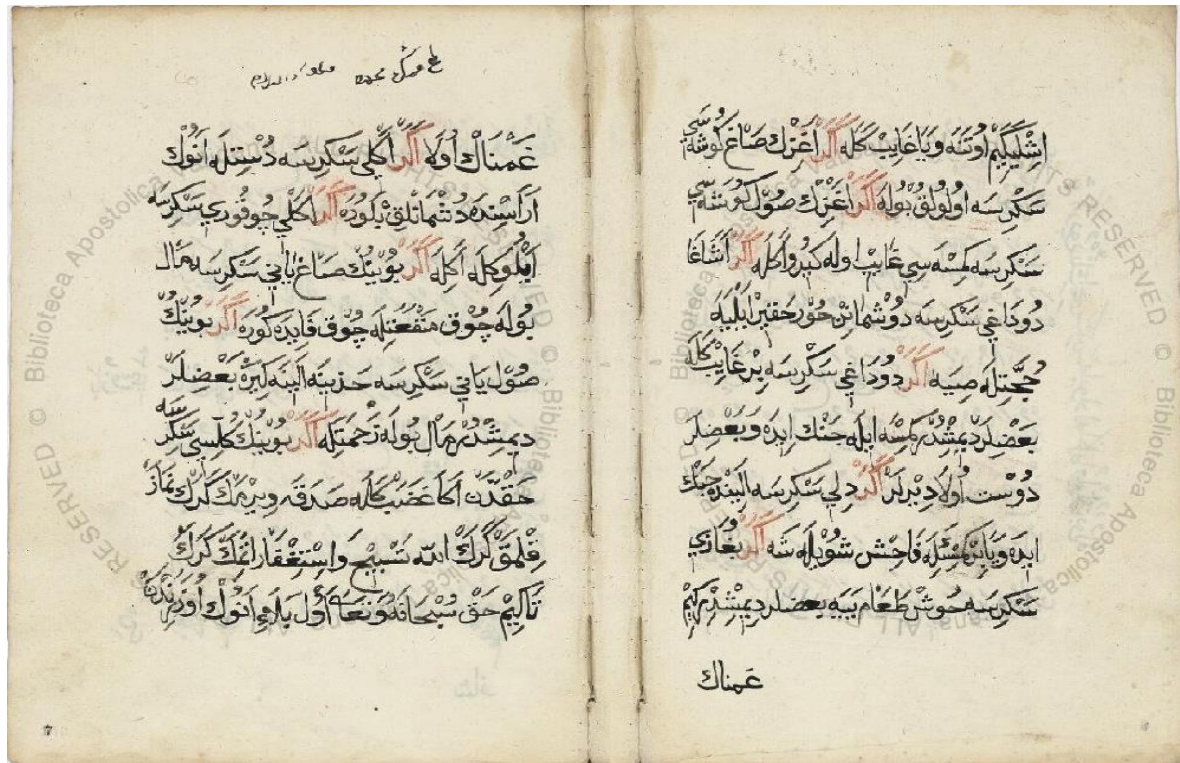 اِشْلَيَكِيمْ اُوتَنَه وَيَا غَايِبْ كَلَه اَكَرْ اَغْزِكْ صَاغْ كُوشَه سِي
سَكْرِسَه اُولُولُقْ بُولَه اَكَرْ اَغْزِكْ صُولْ كُوشَه سِي
سَكْرِسَه كِمْسَه سِي غَايِبْ اوله كيرو اَكَلَه اَكَرْ اَشَاغَا
دُودَاغِي سَكْرِسَه دُوشْمَانِنْ خُورْ حَقِيرْ اَيْلَيَه
حُجَّتِلَه صِيَه اَكَرْ دُودَاغِي سَكْرِسَه بِرْ غَايِبْ كَلَه
بَعْضِلَرْ دِيمِشْدُرْ كِمْسَه اِيلَه جَنْك اِيدَه وَ بَعْضِلَرْ
دُوسْت اُولَا دِيرْلَرْ اَكَرْ دِلِي سَكْرِسَه اَلْبَتَّه جَنْك
ايده وَيَا بِرْ كِمْسَه ايله فَاحِشْ سُويْلَه شَه اَكَرْ بُغَازِي
سَكْرِسَه خُوشْ طَعَامْ يَيَه بعضلر دِيمِشْدُرْ كِيمْ
غمناك
غَمْنَاكْ اُولَا اَكَرْ اَكْلِي سَكْرِسَه دُسْتِلَه اَنُوكْ
اَرَاسِنْدَه دُشْمَانْلِقْ بَلُورَه اَكَرْ اَكْلِي چُوقُورِي سَكْرِسَه
اَيْلُوكْلَه اَكِلَه اَكَرْ بُويْنِكْ صَاغْ يَانِي سَكْرِسَه مَالْ
بُولَه چُوقْ مَنْفَعَتِلَه چُوقْ فَايِدَه كُورَه اَكَرْ بُويْنِكْ
صُولْ يَانِي سَكْرِسَه خَزِينَه اَلِينَه كِيرَه بَعْضِلَرْ
دِيمِشْدُرْ مَالْ بُولَه زَحْمَتِلَه اَكَرْ بُويْنِكْ كُلِّيسِي سَكْرِسَه
حَقْدَنْ اَكَا غَضَبْ كَلَه صَدَقَه وِيرْمَكْ كَرَكْ نَمَازْ
قِلْمَقْ كَرَكْ الله تَسْبِيحْ وَاِسْتِغْفَارْ اِتْمَكْ كَرَكْ
تَا كِيمْ حَقْ سُبْحَانَهُ وَتَعَالَى اُولْ بَلَايِي اَنُوكْ اُوزَرِنْدَنْ
© Biblioteca Apostolica Vaticana. ALL RIGHTS RESERVED